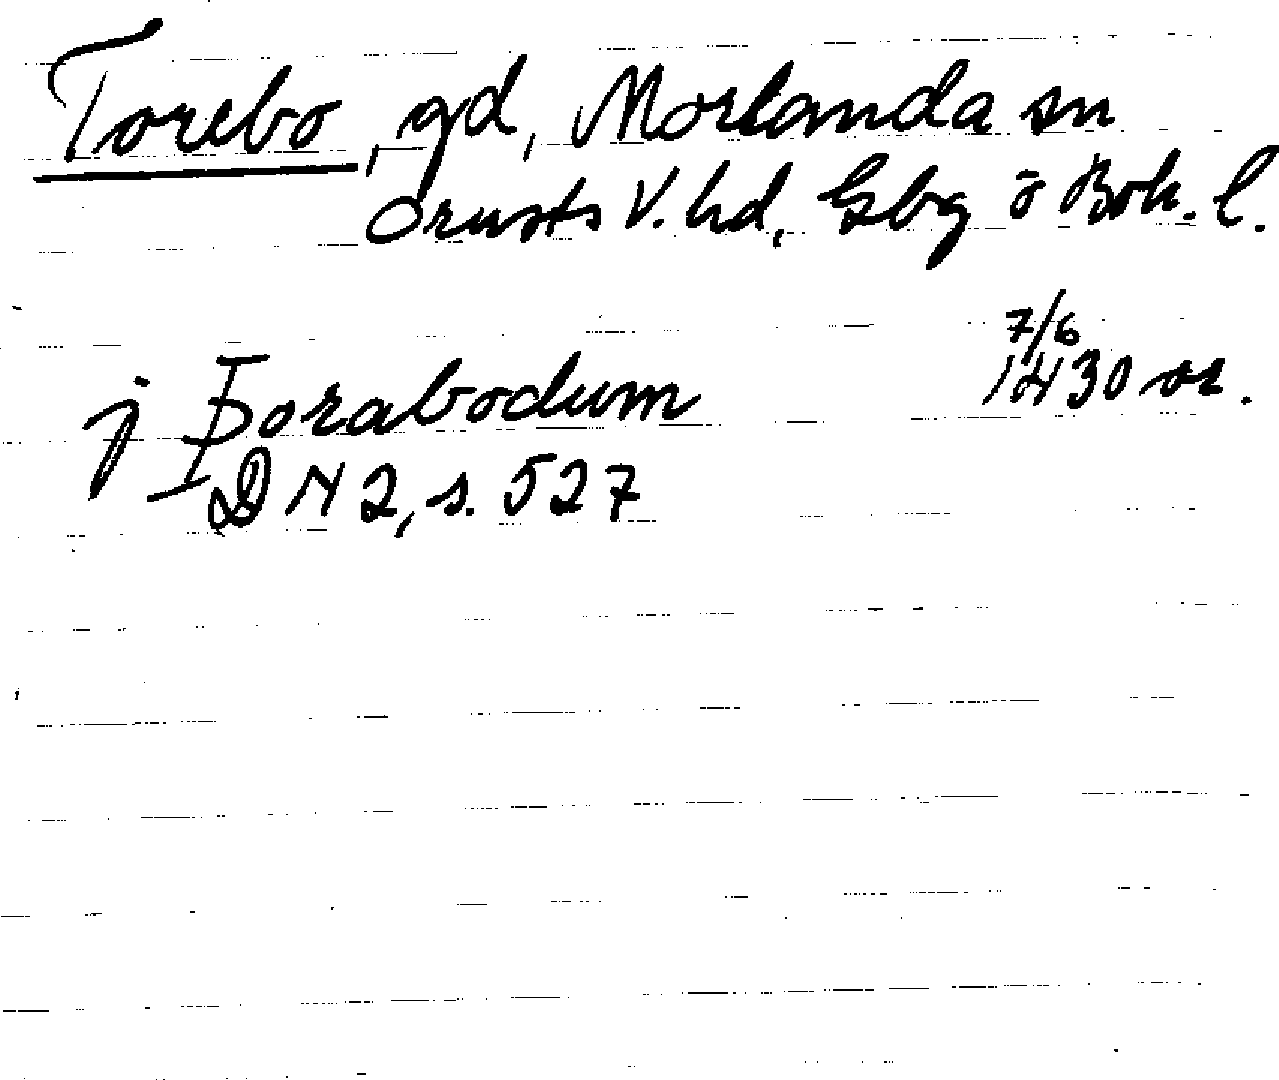 Torebo, gd, Morlanda sn
Orusts V. hd, Gbg o Boh. l.
7/6
j Þorabodum 1430 or.
DN 2, s. 527